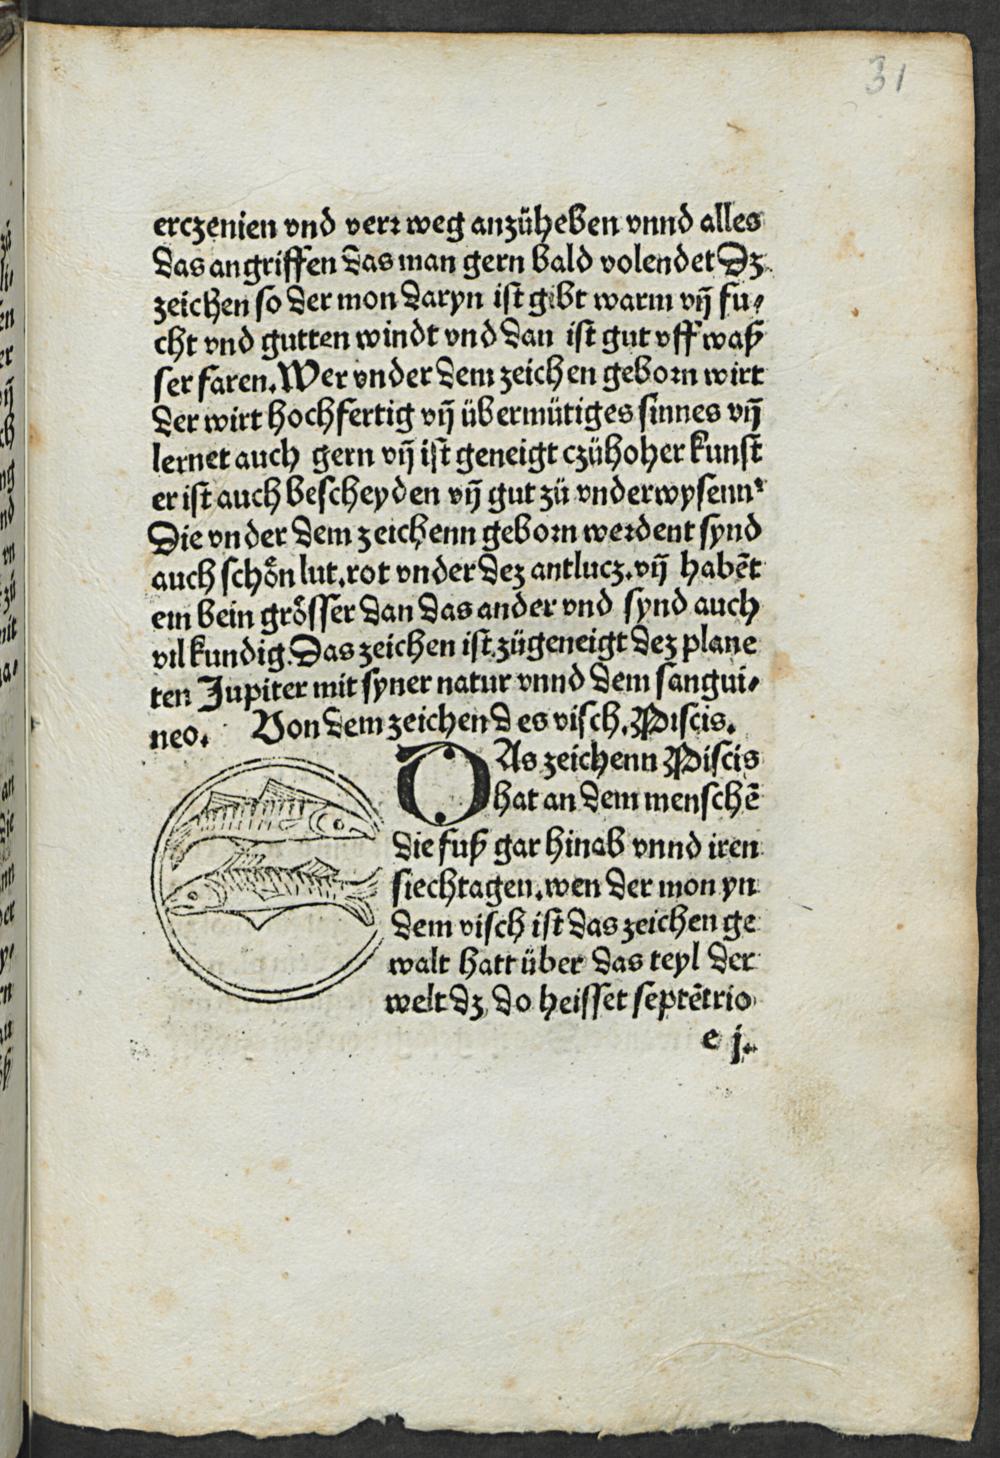 31
erczenien vnd verꝛ weg anzüheben vnnd alles
das angriffen das man gern bald volendet Dz
zeichen so der mon daryn ist gibt warm vn̄ fu⸗
cht vnd gutten windt vnd dan ist gut vff waß
ser faren. Wer vnder dem zeichen geboꝛn wirt
der wirt hochfertig vn̄ übermütiges sinnes vn̄
lernet auch gern vn̄ ist geneigt czü hoher kunst
er ist auch bescheyden vn̄ gut zü vnderwysenn.
Die vnder dem zeichenn geboꝛn weꝛdent synd
auch schoͤn lut. rot vnder dez antlucz. vn̄ habēt
ein bein groͤsser dan das ander vnd synd auch
vil kundig. Das zeichen ist zügeneigt dez plane
ten Jupiter mit syner natur vnnd dem sangui⸗
neo. Von dem zeichen des visch. Piscis.
DAs zeichenn Piscis
hat an dem menschē
die fuß gar hinab vnnd iren
siechtagen. wen der mon yn
dem visch ist das zeichen ge
walt hatt über das teyl der
welt dz do heisset septētrio
e j.